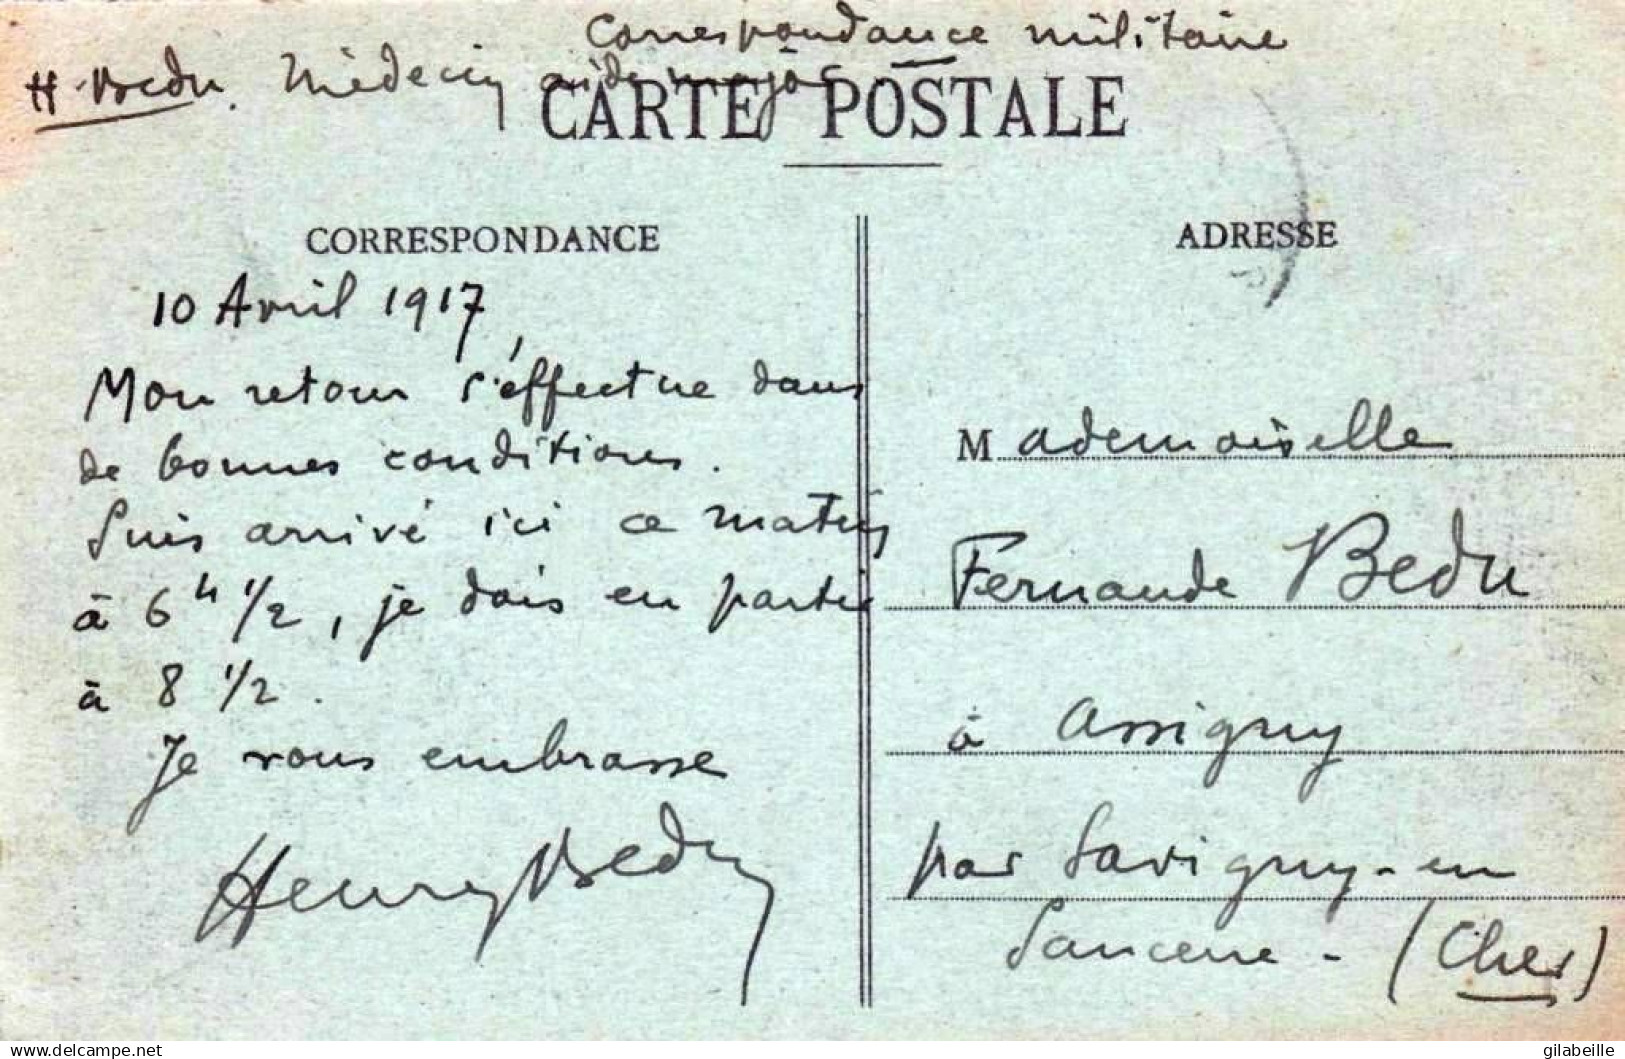 Correspondance militaire
H. Bedu. Médecin aide major
CARTE POSTALE
CORRESPONDANCE
10 Avril 1917
Mon retour s'éffectue dans
de bonnes conditions.
Suis arrivé ici ce matin
à 6 h 1/2, je dois en partir
à 8 1/2.
Je vous embrasse
Henry Bedu
ADRESSE
Mademoiselle
Fernande Bedu
à Assigny
par Savigny-en
Sancerre - (Cher)
delcampe.net
gilabeille